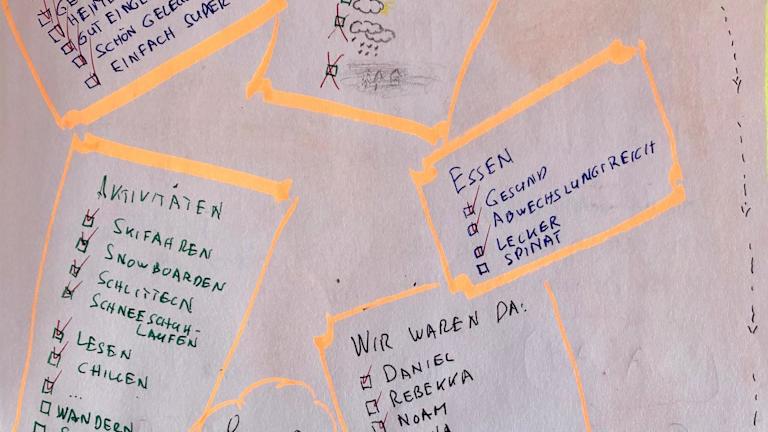 GUT EINGE
SCHÖN GELEG
EINFACH SUPER
AKTIVITÄTEN
SKIFAHREN
SNOWBOARDEN
SCHLITTELN
SCHNEESCHUH-
LAUFEN
LESEN
CHILLEN
...
WANDERN
ESSEN
GESUND
ABWECHSLUNGSREICH
LECKER
SPINAT
WIR WAREN DA:
DANIEL
REBEKKA
NOAM